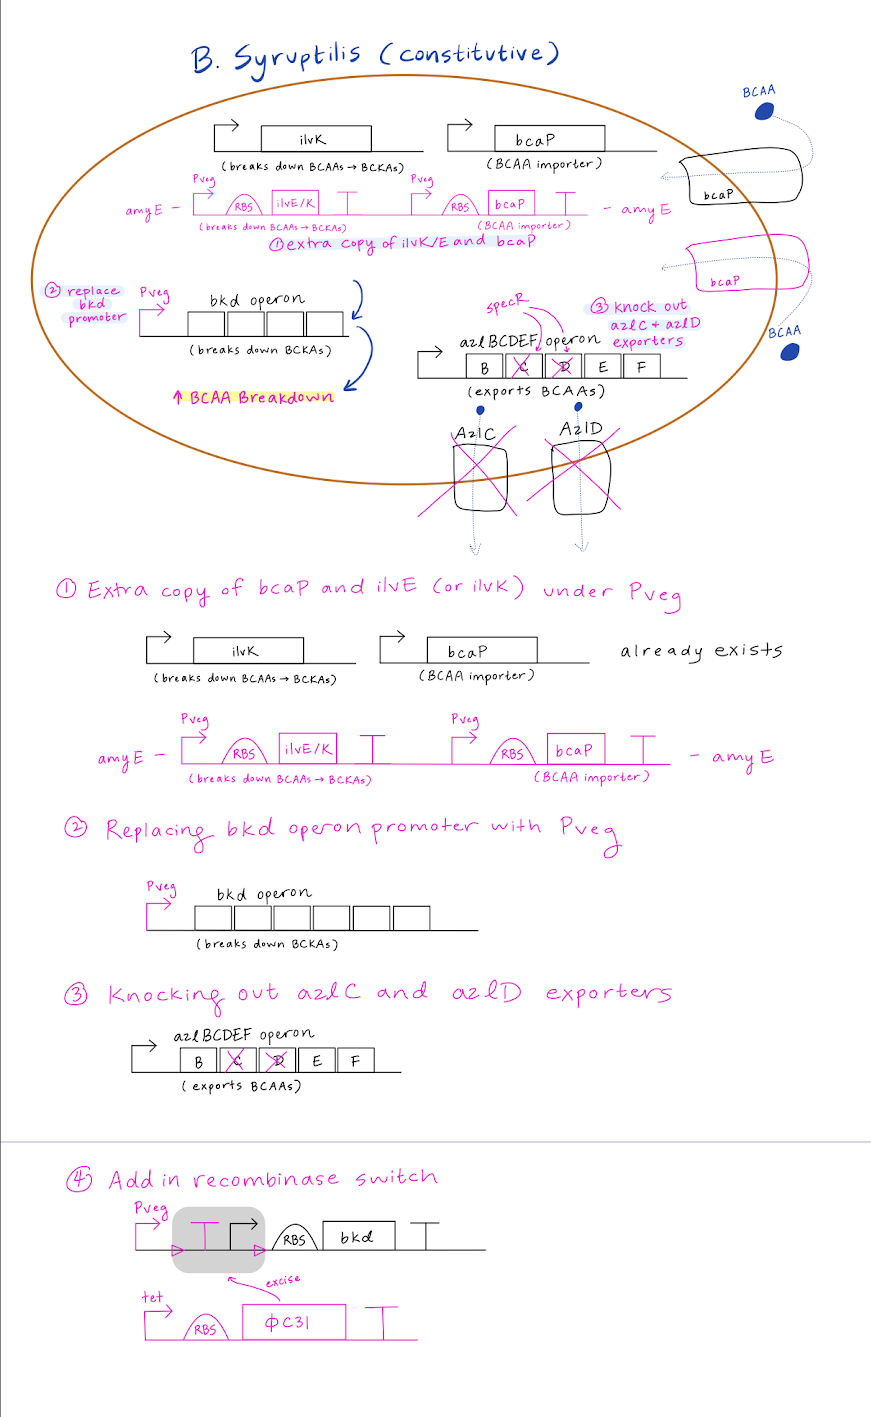 B. Syruptilis (constitutive)
BCAA
ilvK
bcaP
(breaks down BCAAs → BCKAs)
(BCAA importer)
bcaP
Pveg
Pveg
amyE -
RBS
ilvE/K
RBS
bcaP
- amyE
(breaks down BCAAs → BCKAs)
(BCAA importer)
① extra copy of ilvK/E and bcaP
bcaP
② replace
bkd
promoter
Pveg
bkd operon
(breaks down BCKAs)
↑ BCAA Breakdown
specR
③ knock out
azlC + azlD
exporters
BCAA
azlBCDEF operon
B
C
D
E
F
(exports BCAAs)
AzlC
AzlD
① Extra copy of bcaP and ilvE (or ilvK) under Pveg
ilvK
bcaP
already exists
(breaks down BCAAs → BCKAs)
(BCAA importer)
Pveg
Pveg
amyE -
RBS
ilvE/K
RBS
bcaP
- amyE
(breaks down BCAAs → BCKAs)
(BCAA importer)
② Replacing bkd operon promoter with Pveg
Pveg
bkd operon
(breaks down BCKAs)
③ Knocking out azlC and azlD exporters
azlBCDEF operon
B
C
D
E
F
(exports BCAAs)
④ Add in recombinase switch
Pveg
RBS
bkd
excise
tet
RBS
ϕC31